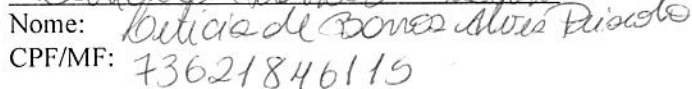 Nome: Leticia de Barros Alves
CPF/MF: 73621846115